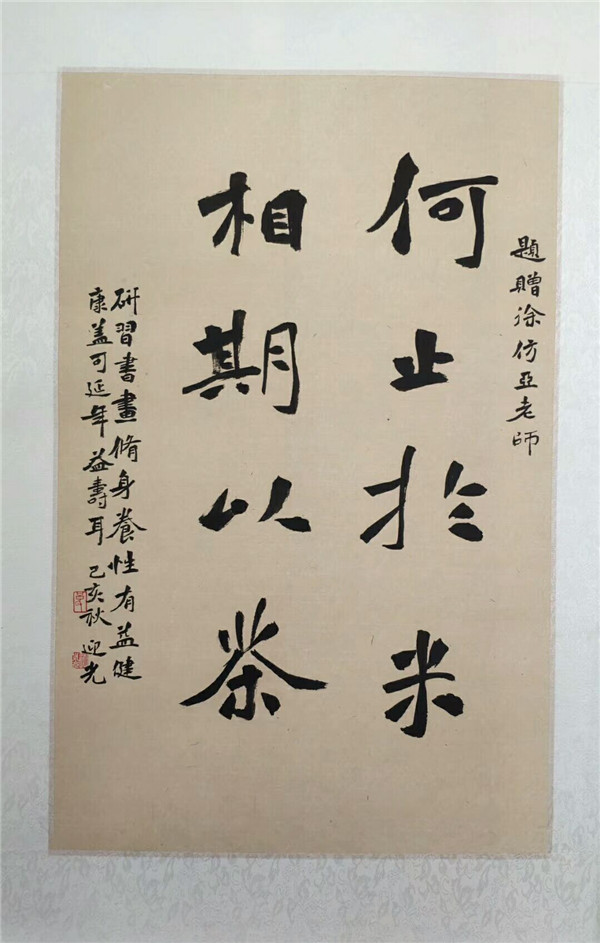 題贈徐仿亞老師
何止於米
相期以茶
研習書畫脩身養性有益健
康蓋可延年益壽耳 己亥秋 迎光